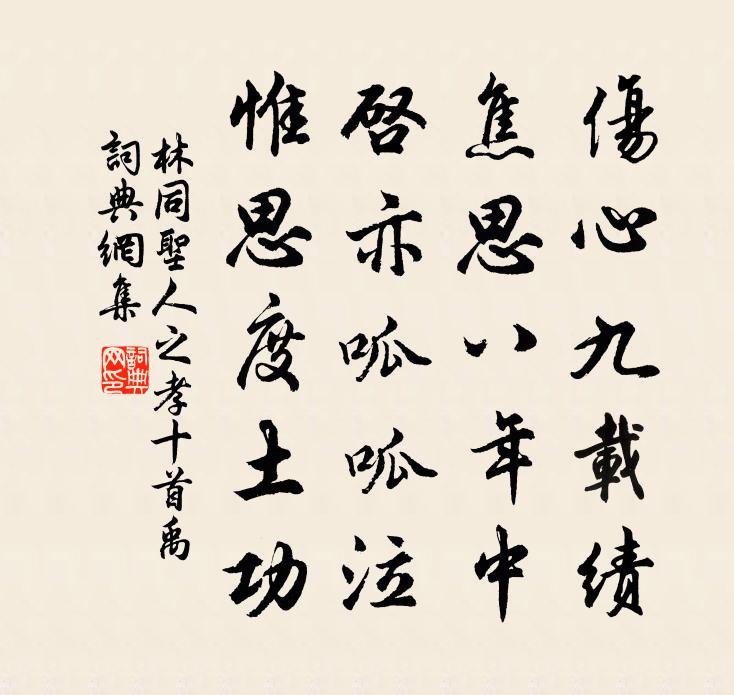 傷心九載績
焦思八年中
啓亦呱呱泣
惟思度土功
林同聖人之孝十首禹
詞典網集
詞典網印